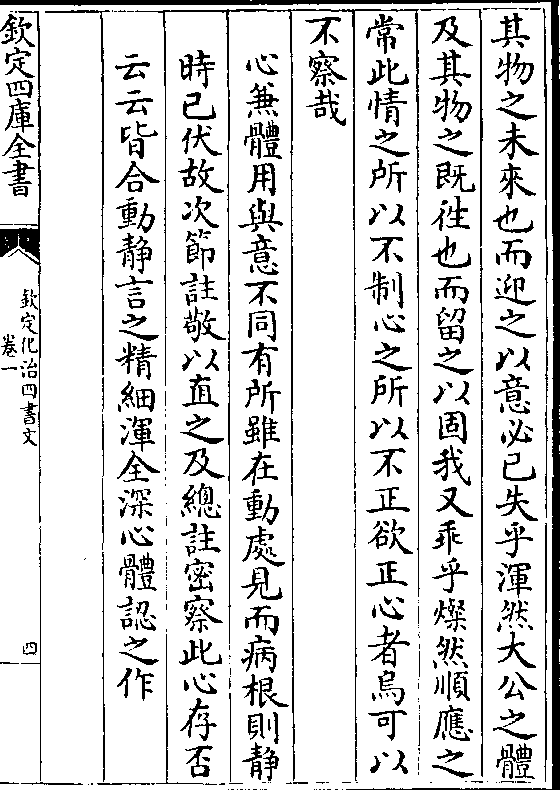 其物之未來也而迎之以意必已失乎渾然大公之體
及其物之既徃也而留之以固我又乖乎燦然順應之
常此情之所以不制心之所以不正欲正心者烏可以
不察哉
心兼體用與意不同有所雖在動處見而病根則静
時已伏故次節註敬以直之及總註密察此心存否
云云皆合動静言之精細渾全深心體認之作
欽定四庫全書
欽定化治四書文
卷一
四